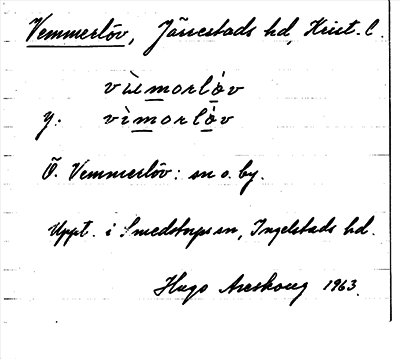 Vemmerlöv, Järrestads hd, Krist. l.
vìemorlóv
y: vìmorlòv
Ö. Vemmerlöv: sn o. by.
Uppt. i Smedstorps sn, Ingelstads hd.
Hugo Areskoug 1963.